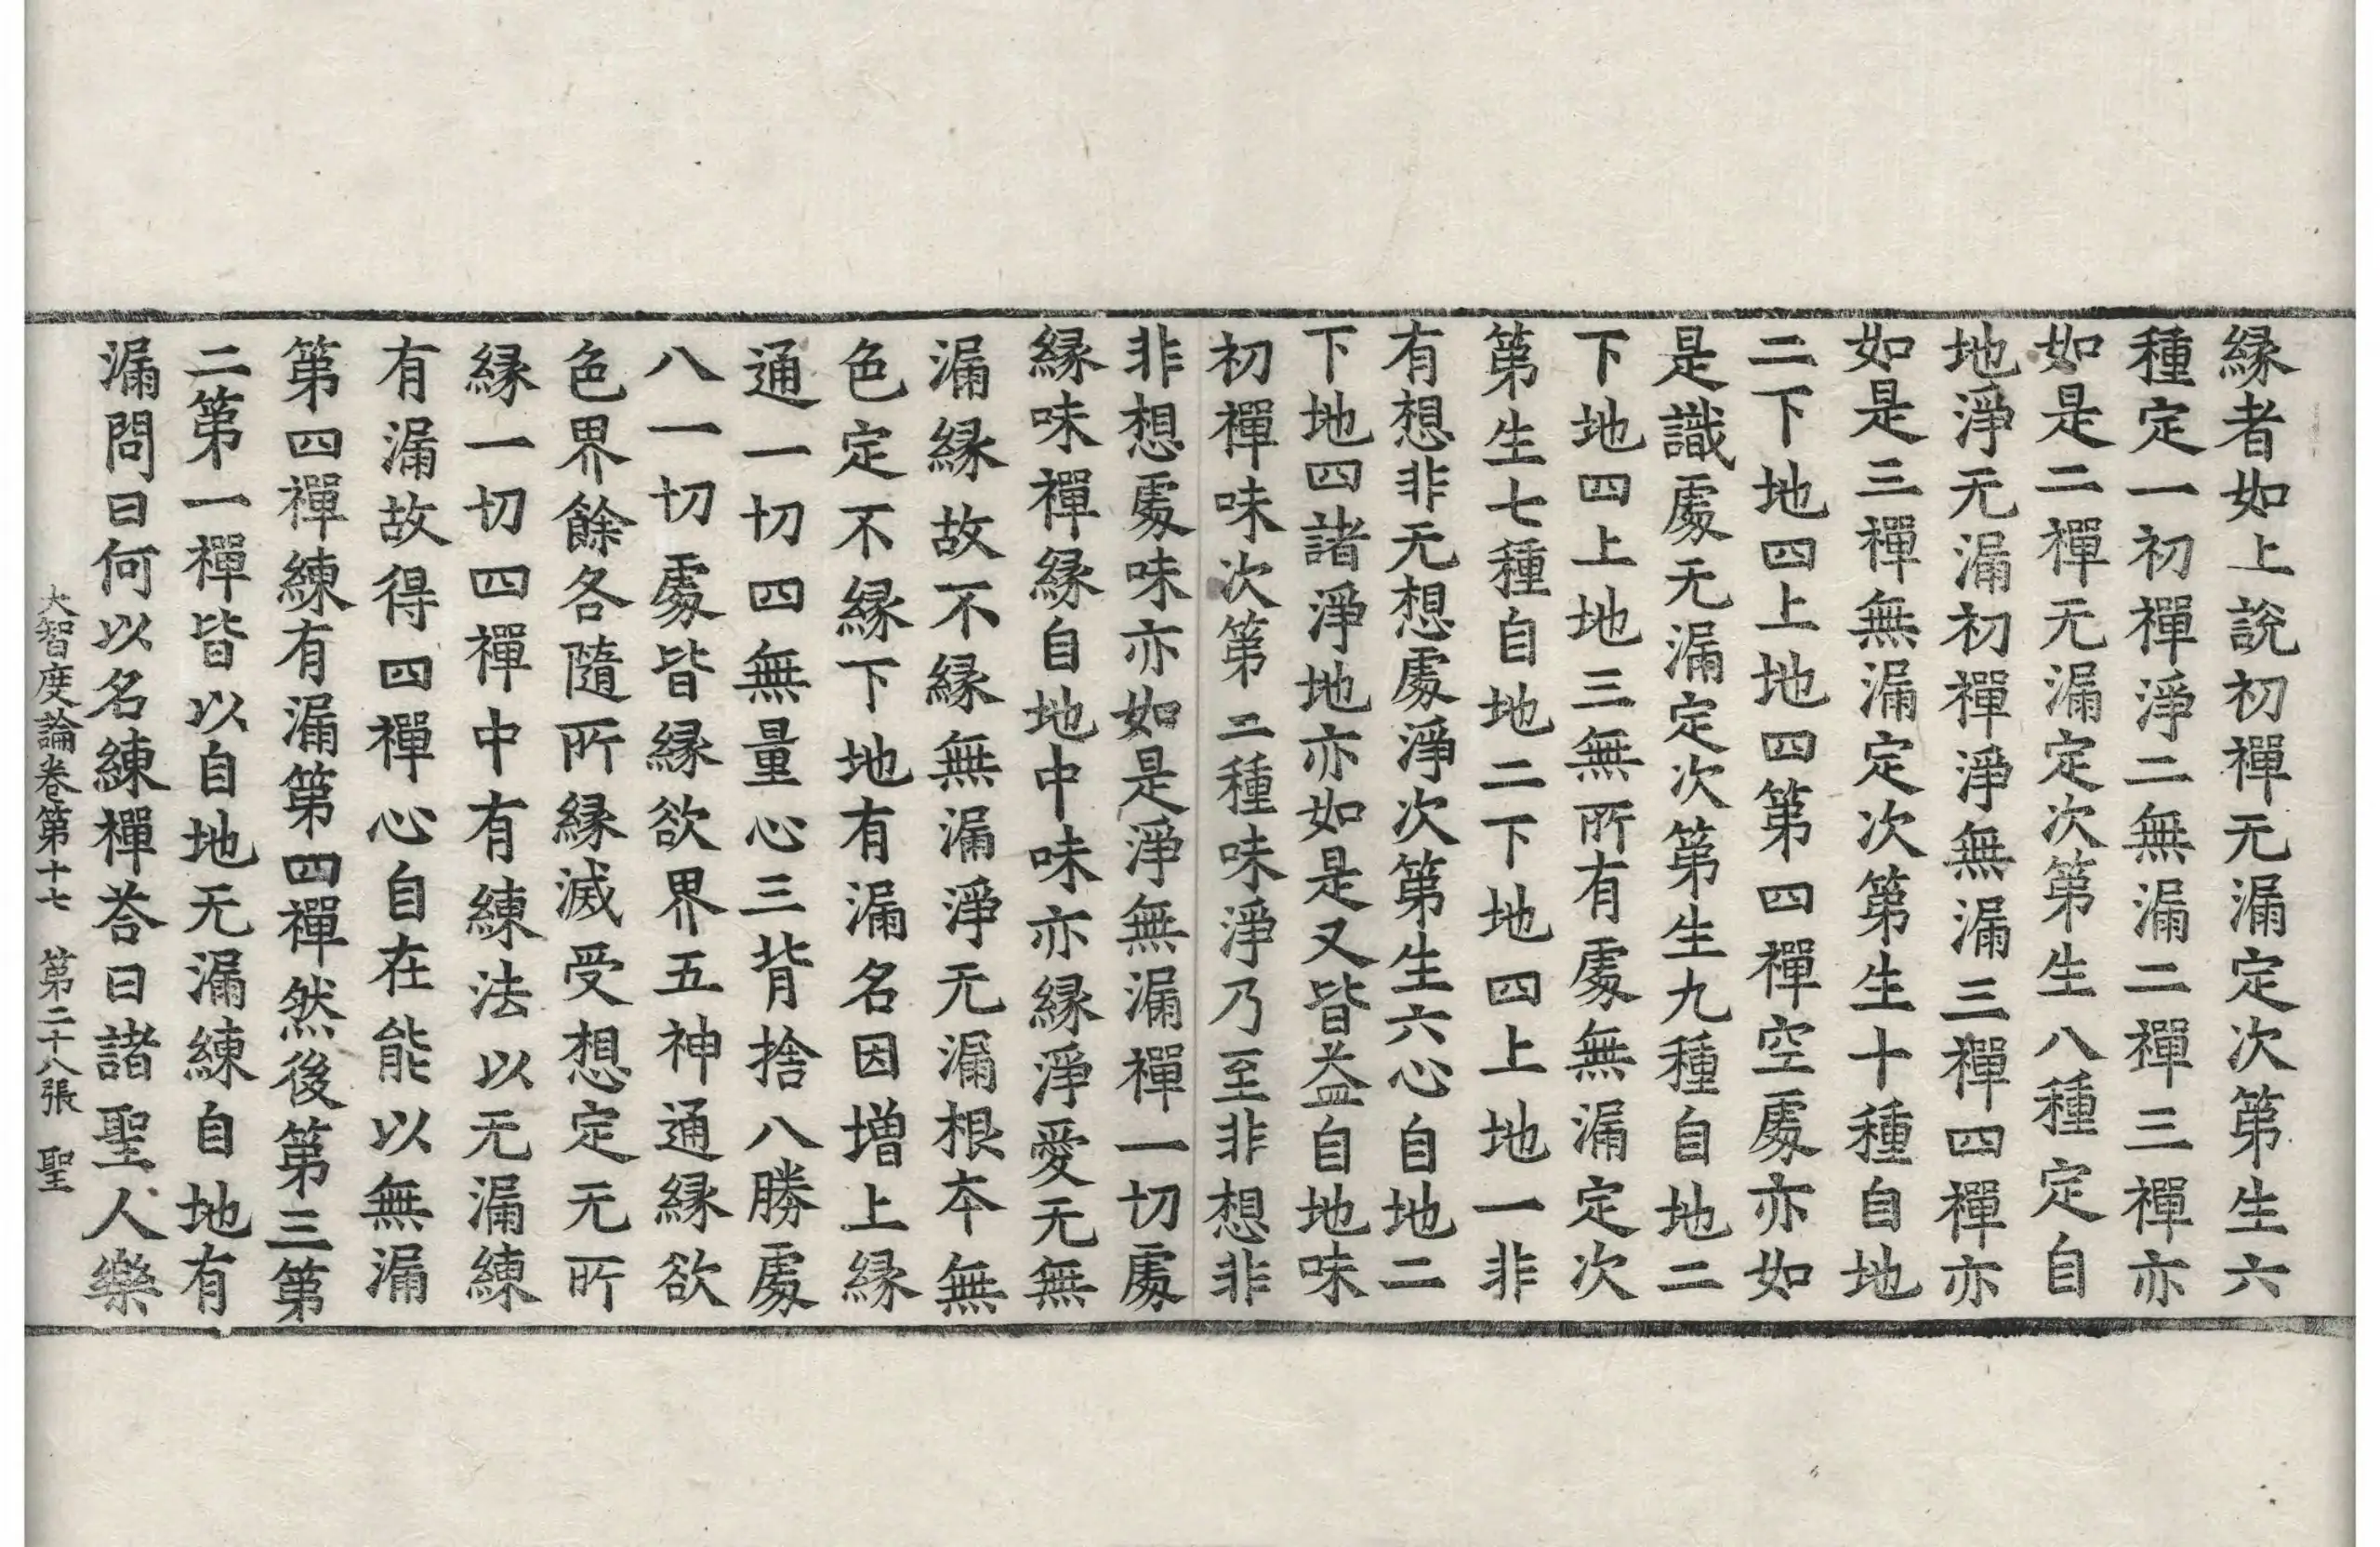 縁者如上說初禪无漏定次第生六
種定一初禪淨二無漏二禪三禪亦
如是二禪无漏定次第生八種定自
地淨无漏初禪淨無漏三禪四禪亦
如是三禪無漏定次第生十種自地
二下地四上地四第四禪空處亦如
是識處无漏定次第生九種自地二
下地四上地三無所有處無漏定次
第生七種自地二下地四上地一非
有想非无想處淨次第生六心自地二
下地四諸淨地亦如是又皆益自地味
初禪味次第二種味淨乃至非想非
非想處味亦如是淨無漏禪一切處
縁味禪縁自地中味亦縁淨愛无無
漏縁故不縁無漏淨无漏根本無
色定不縁下地有漏名因增上縁
通一切四無量心三背捨八勝處
八一切處皆縁欲界五神通縁欲
色界餘各隨所縁滅受想定无所
縁一切四禪中有練法以无漏練
有漏故得四禪心自在能以無漏
第四禪練有漏第四禪然後第三第
二第一禪皆以自地无漏練自地有
漏問曰何以名練禪荅曰諸聖人樂
大智度論卷第十七　第二十八張　聖